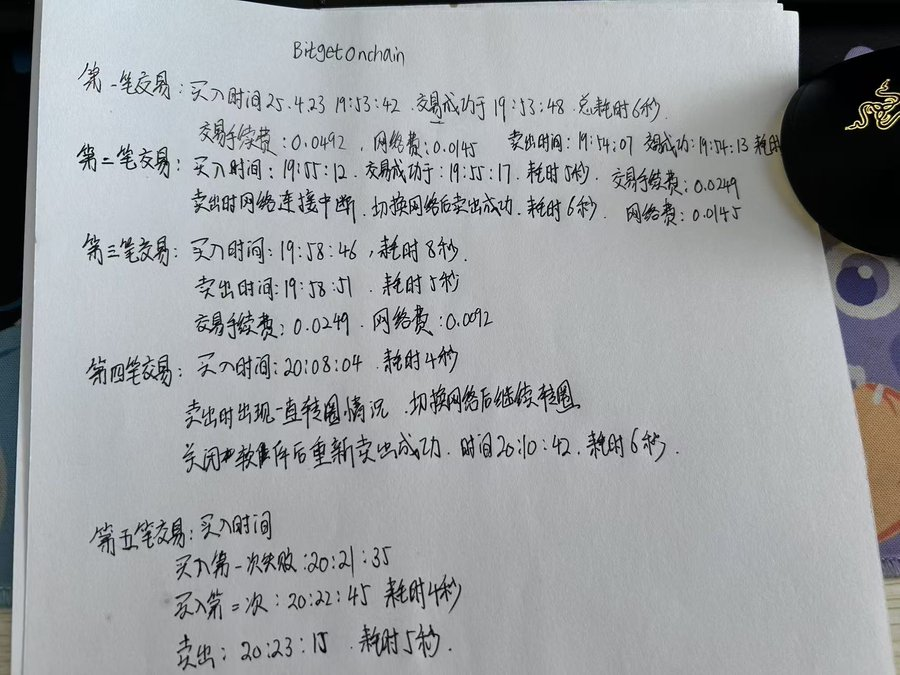 Bitgetonchain
第一笔交易：买入时间25.4.23 19:53:42 .交易成功于19:53:48 .总耗时6秒.
交易手续费：0.0492 . 网络费：0.0145 卖出时间：19:54:07 交易成功：19:54:13 耗时
第二笔交易：买入时间：19:55:12 . 交易成功于：19:55:17 . 耗时5秒. 交易手续费：0.0249
卖出时网络连接中断 . 切换网络后卖出成功. 耗时6秒. 网络费：0.0145
第三笔交易：买入时间：19:58:46 ，耗时8秒.
卖出时间：19:58:51 . 耗时5秒
交易手续费：0.0249 . 网络费：0.0092
第四笔交易：买入时间：20:08:04 . 耗时4秒
卖出时出现一直转圈情况 . 切换网络后继续转圈
关闭软件后重新卖出成功. 时间20:10:42 . 耗时6秒.
第五笔交易：买入时间
买入第一次失败：20:21:35
买入第二次：20:22:45 耗时4秒
卖出：20:23:15 . 耗时5秒.